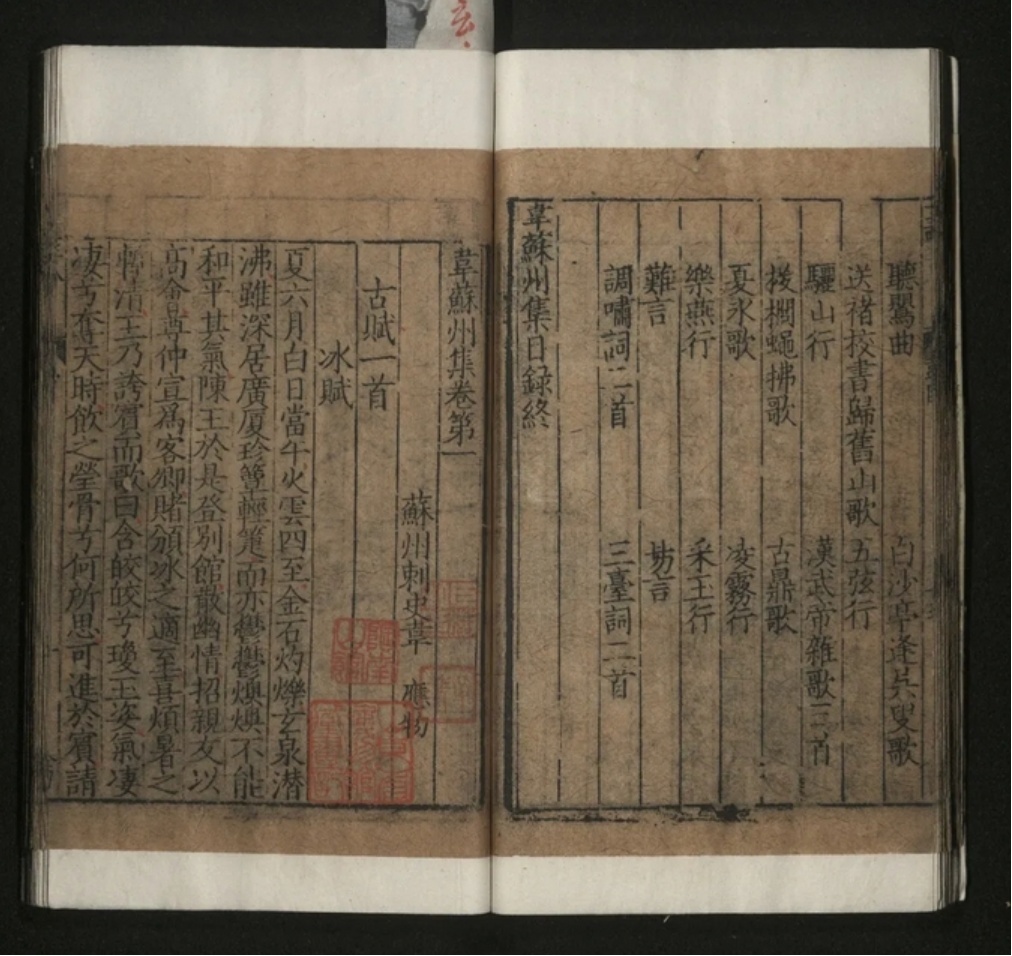 聽鶯曲 白沙亭逢吳叟歌
送褚校書歸舊山歌 五弦行
驪山行 漢武帝雜歌三首
椶櫚蠅拂歌 古鼎歌
夏氷歌 凌霧行
樂燕行 采玉行
難言 易言
調嘯詞二首 三臺詞二首
韋蘇州集目録終
韋蘇州集卷第一
蘇州刺史韋 應物
古賦一首
冰賦
夏六月白日當午火雲四至金石灼爍玄泉潜
沸雖深居廣厦珍簟輕箑而亦鬱鬱燠燠不能
和平其氣陳王於是登別館散幽情招親友以
高會尊仲宣爲客卿睹頒冰之適至喜煩暑之
暫清王乃誇賓而歌曰含皎皎兮瓊玉姿氣凄
凄兮奪天時飲之瑩骨兮何所思可進於賓請